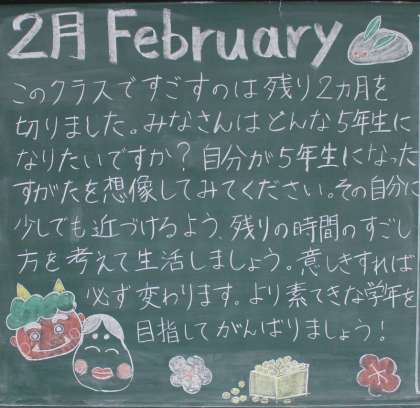 2月 February
このクラスですごすのは残り2カ月を
切りました。みなさんはどんな5年生に
なりたいですか?自分が5年生になった
すがたを想像してみてください。その自分に
少しでも近づけるよう、残りの時間のすごし
方を考えて生活しましょう。意しきすれば
必ず変わります。より素てきな学年を
目指してがんばりましょう!